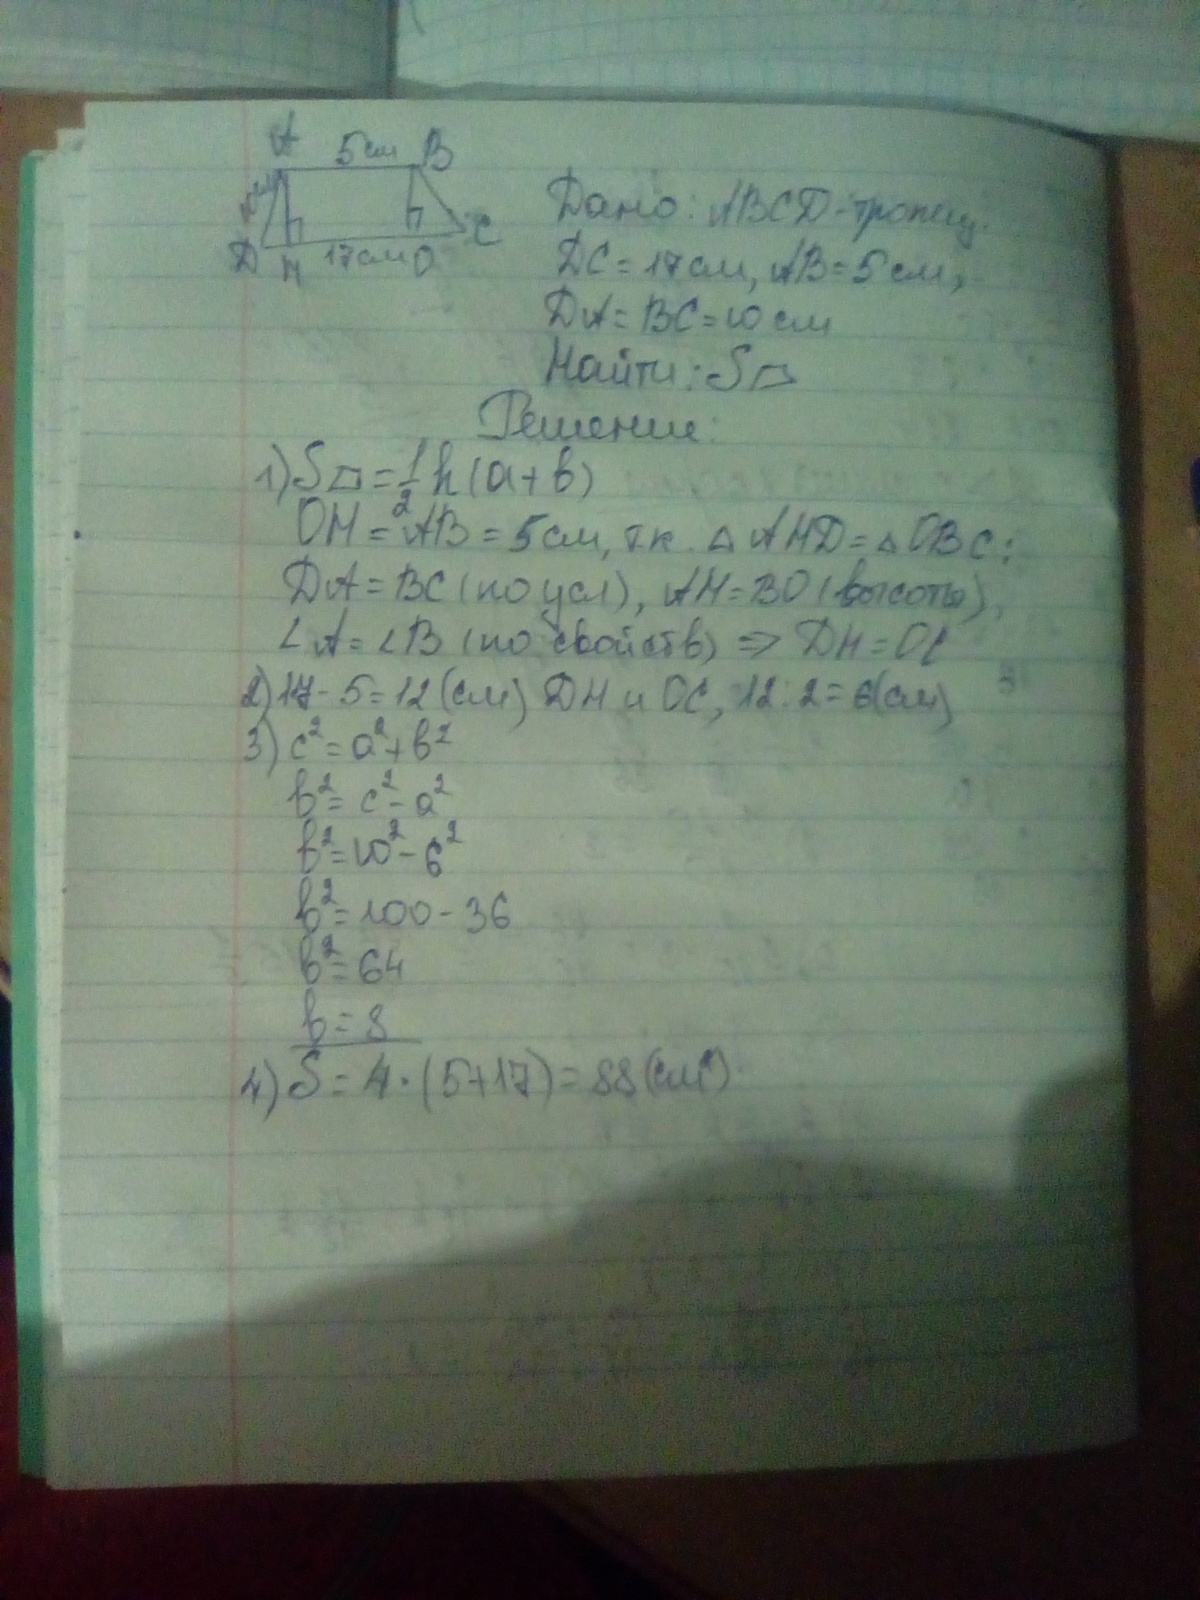 A 5см B
10см
D H 17см O C
Дано: ABCD-трапец.
DC = 17см, AB = 5см,
DA = BC = 10 см
Найти: S▱
Решение:
1) S▱ = 1/2 h (a + b)
OH = AB = 5см, т.к. △ AHD = △ OBC:
DA = BC (по усл), AH = BO (высоты),
∠A = ∠B (по свойств) ⇒ DH = OC
2) 17 - 5 = 12 (см) DH и OC, 12 : 2 = 6(см)
3) c² = a² + b²
b² = c² - a²
b² = 10² - 6²
b² = 100 - 36
b² = 64
b = 8
4) S = 4 · (5+17) = 88 (см²)